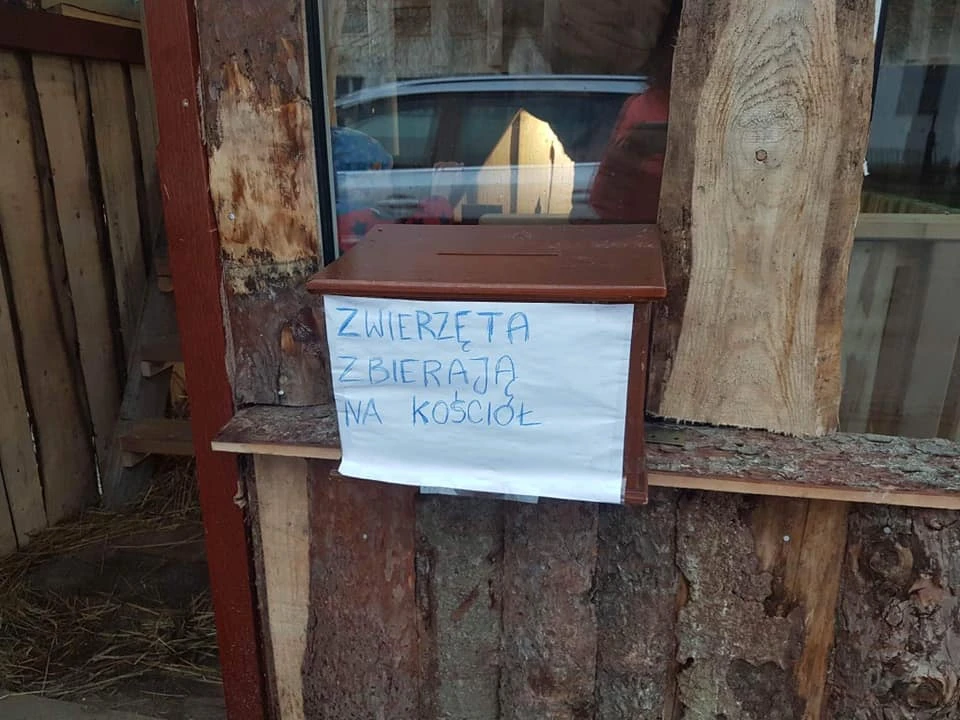 ZWIERZĘTA
ZBIERAJĄ
NA KOŚCIÓŁ